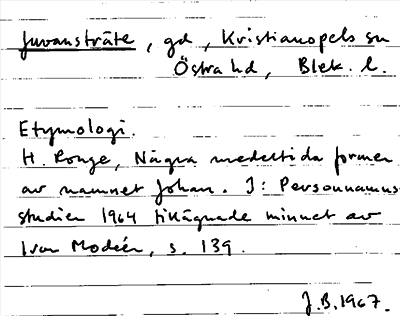 Juvansträte, gd, Kristianopels sn
Östra hd, Blek. l.
Etymologi.
H. Ronge, Några medeltida former
av namnet Johan. I: Personnamns-
studier 1964 tillägnade minnet av
Ivar Modéer, s. 139.
J.B. 1967.